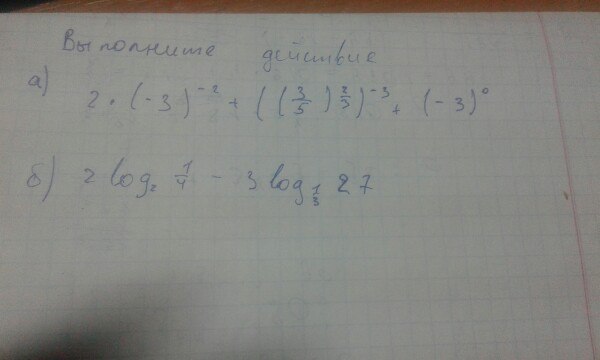 Выполните действие
а) 2 · (-3)⁻² + ((3/5)^(2/3))⁻³ + (-3)⁰
б) 2 log₂ 1/4 - 3 log_(1/3) 27